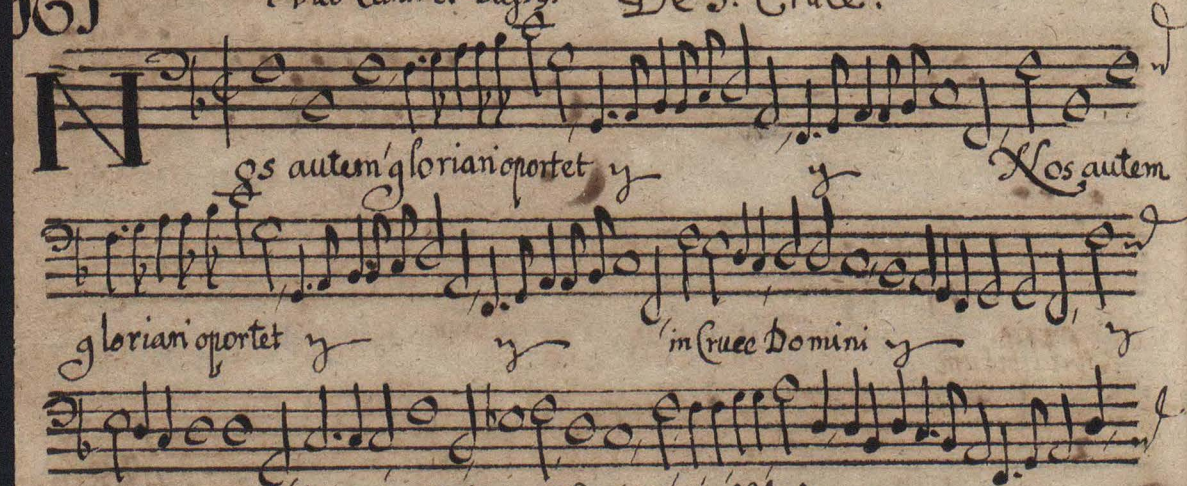 De S. Cruce.
Nos autem gloriari oportet ij ij Nos autem
gloriari oportet ij ij in Cruce Domini ij ij